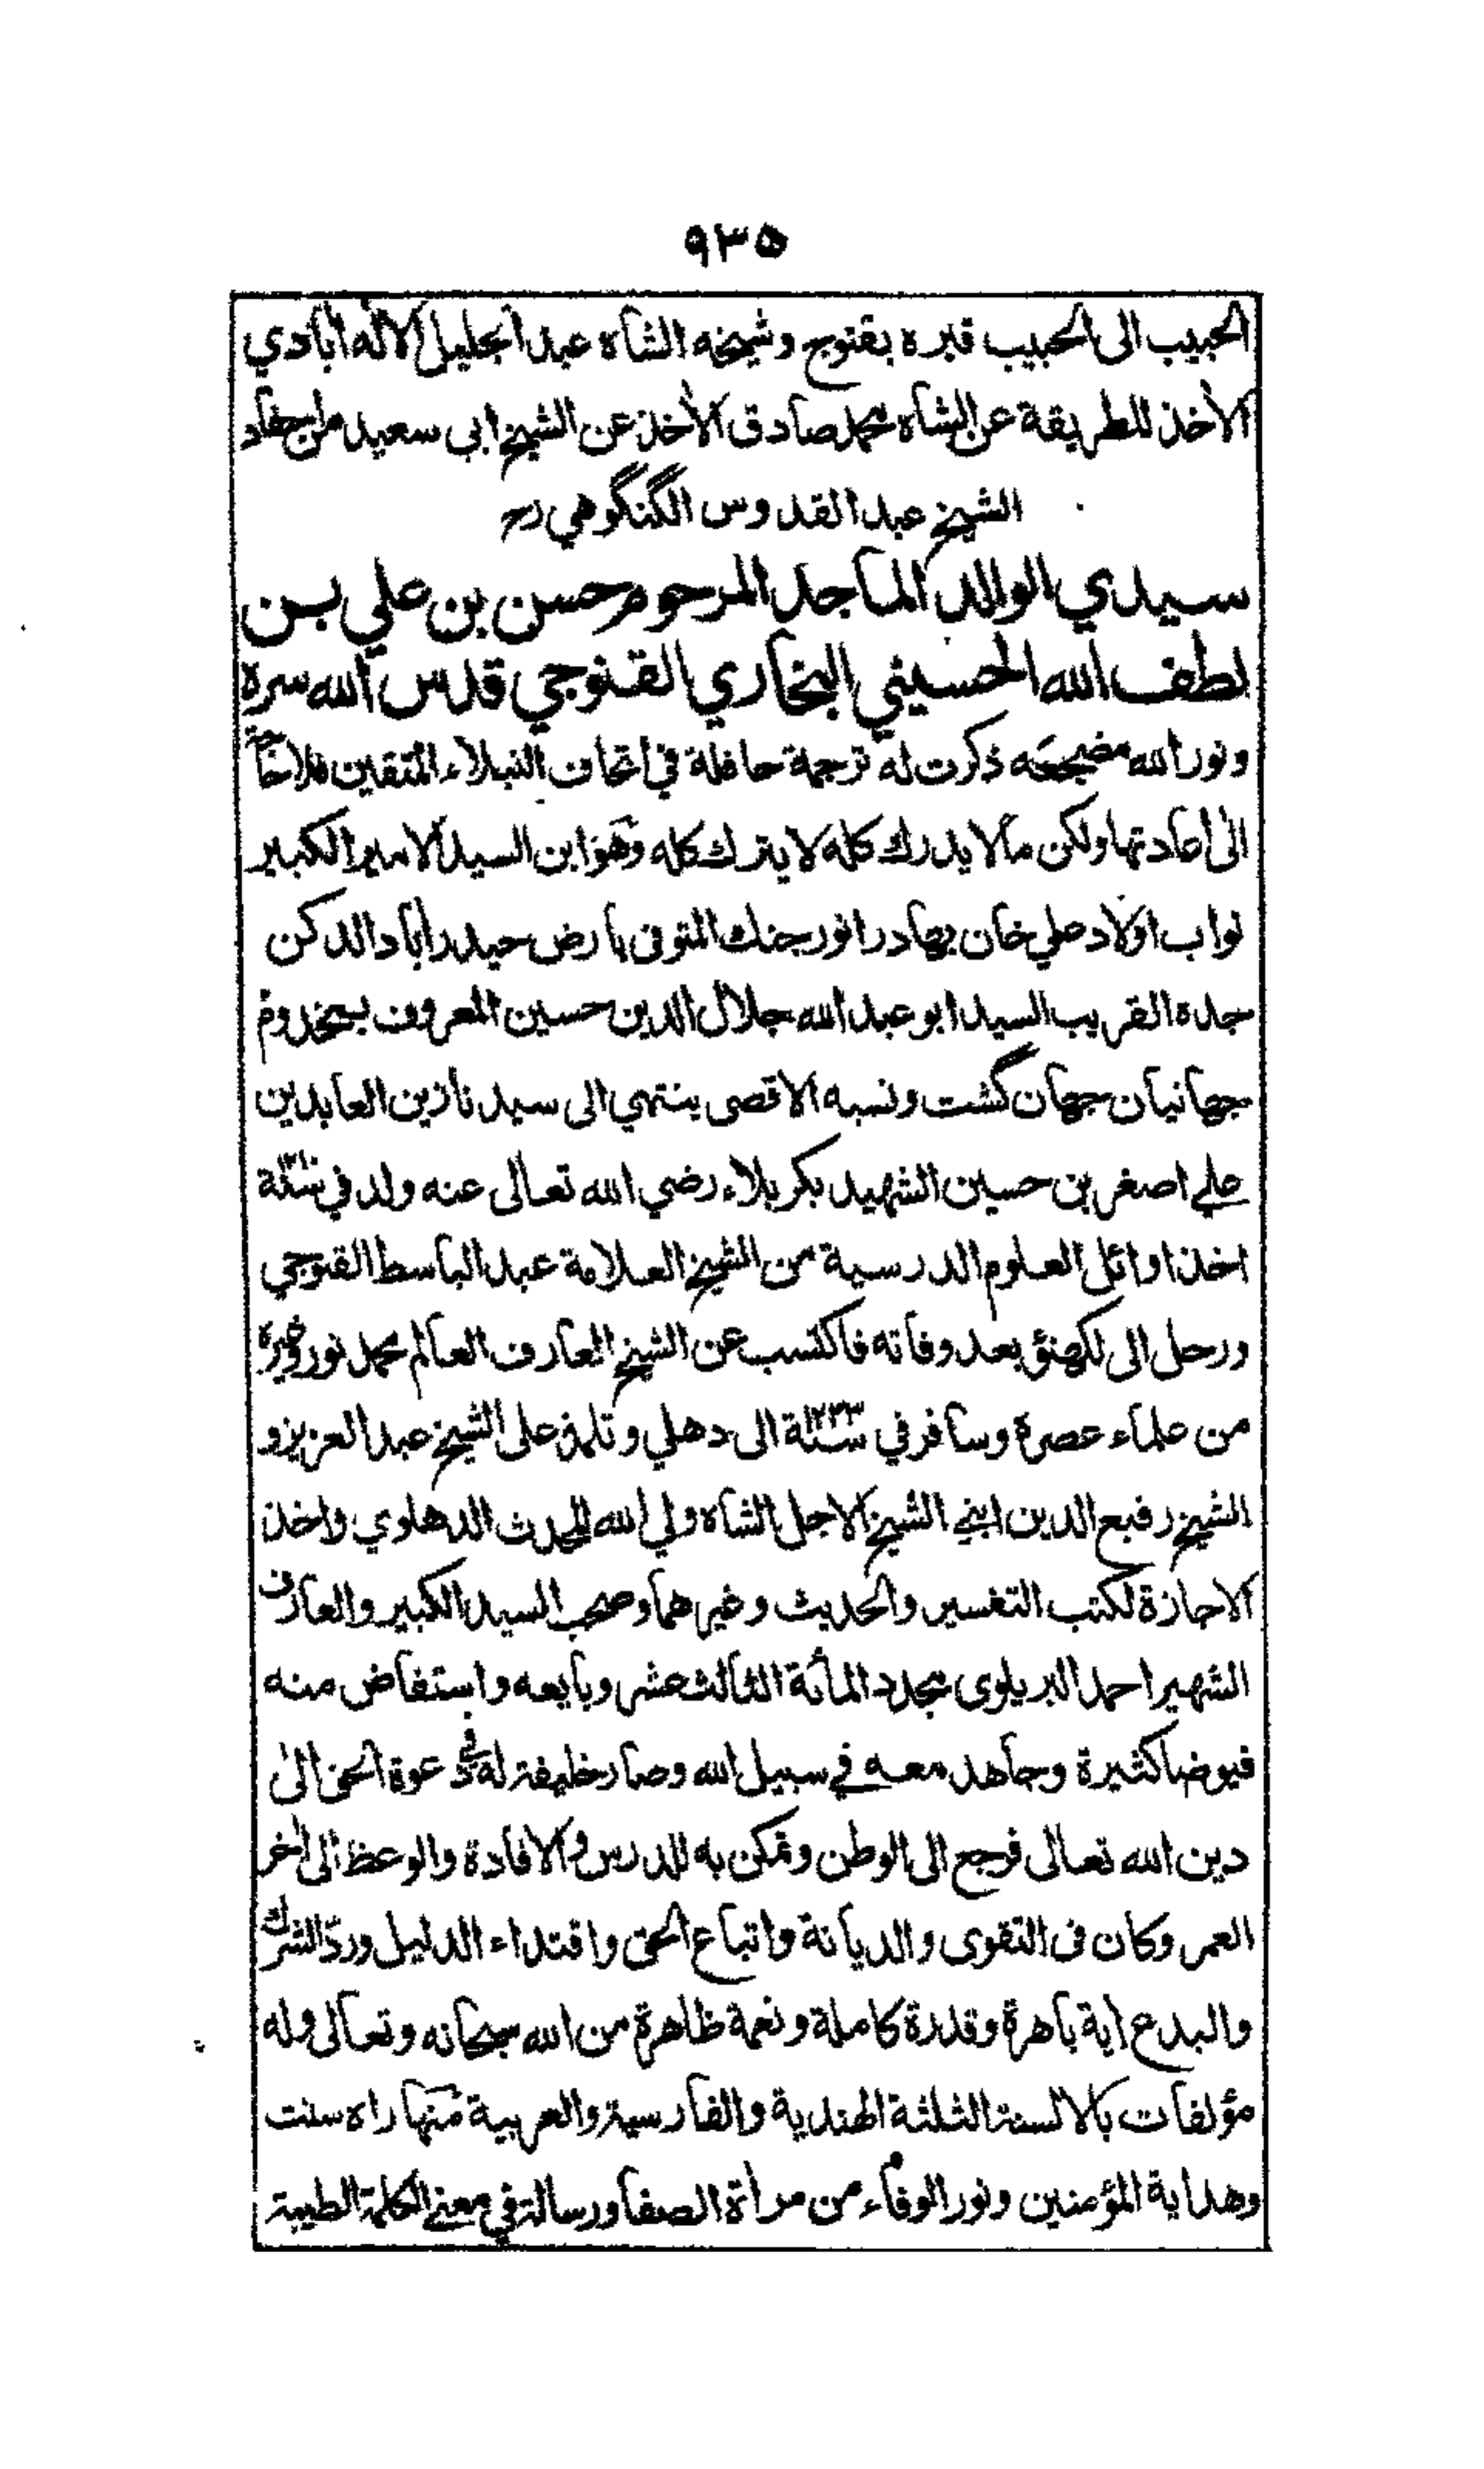 ٩٣٥
الحبيب الى الحبيب قبره بقنوج وشيخه الشاه عبد الجليل الاله ابادي
الأخذ للطريقة عن الشاه محمد صادق الأخذ عن الشيخ ابى سعيد من احفاد
الشيخ عبد القدوس الگنگوهي رح
سيدي الوالد الماجد المرحوم حسن بن علي بن
لطف الله الحسيني البخاري القنوجي قدس الله سره
ونور الله مضجعه ذكرت له ترجمة حافلة في اتحاف النبلاء المتقين فلا حاجة
الى اعادتها ولكن مالا يدرك كله لا يترك كله وهو ابن السيد الامير الكبير
نواب اولاد علي خان بهادر انور جنك المتوفى بارض حيدر اباد الدكن
جده القريب السيد ابو عبد الله جلال الدين حسين المعروف بمخدوم
جهانيان جهان گشت ونسبه الاقصى ينتهي الى سيدنا زين العابدين
علي اصغر بن حسين الشهيد بكربلاء رضي الله تعالى عنه ولد في سنة
اخذ اوائل العلوم الدرسية من الشيخ العلامة عبد الباسط القنوجي
ورحل الى لكهنؤ بعد وفاته فاكتسب عن الشيخ العارف العالم محمد نور وغيره
من علماء عصره وسافر في سنة ١٢٣٣ الى دهلي وتلمذ على الشيخ عبد العزيز و
الشيخ رفيع الدين ابني الشيخ الاجل الشاه ولي الله المحدث الدهلوي واخذ
الاجازة لكتب التفسير والحديث وغيرهما وصحب السيد الكبير والعارف
الشهير احمد البريلوى مجدد المائة الثالث عشر وبايعه واستفاض منه
فيوضا كثيرة وجاهد معه في سبيل الله وصار خليفة له في دعوة الحق الى
دين الله تعالى فرجع الى الوطن وتمكن به للدرس والافادة والوعظ الى اخر
العمر وكان فى التقوى والديانة واتباع الحق واقتداء الدليل وردّ الشرك
والبدع اية باهرة وقدرة كاملة ونعمة ظاهرة من الله سبحانه وتعالى وله
مؤلفات بالالسنة الثلثة الهندية والفارسية والعربية منها راه سنت
وهداية المؤمنين ونور الوفاء من مرأة الصفا ورسالة في معنى الكلمة الطيبة